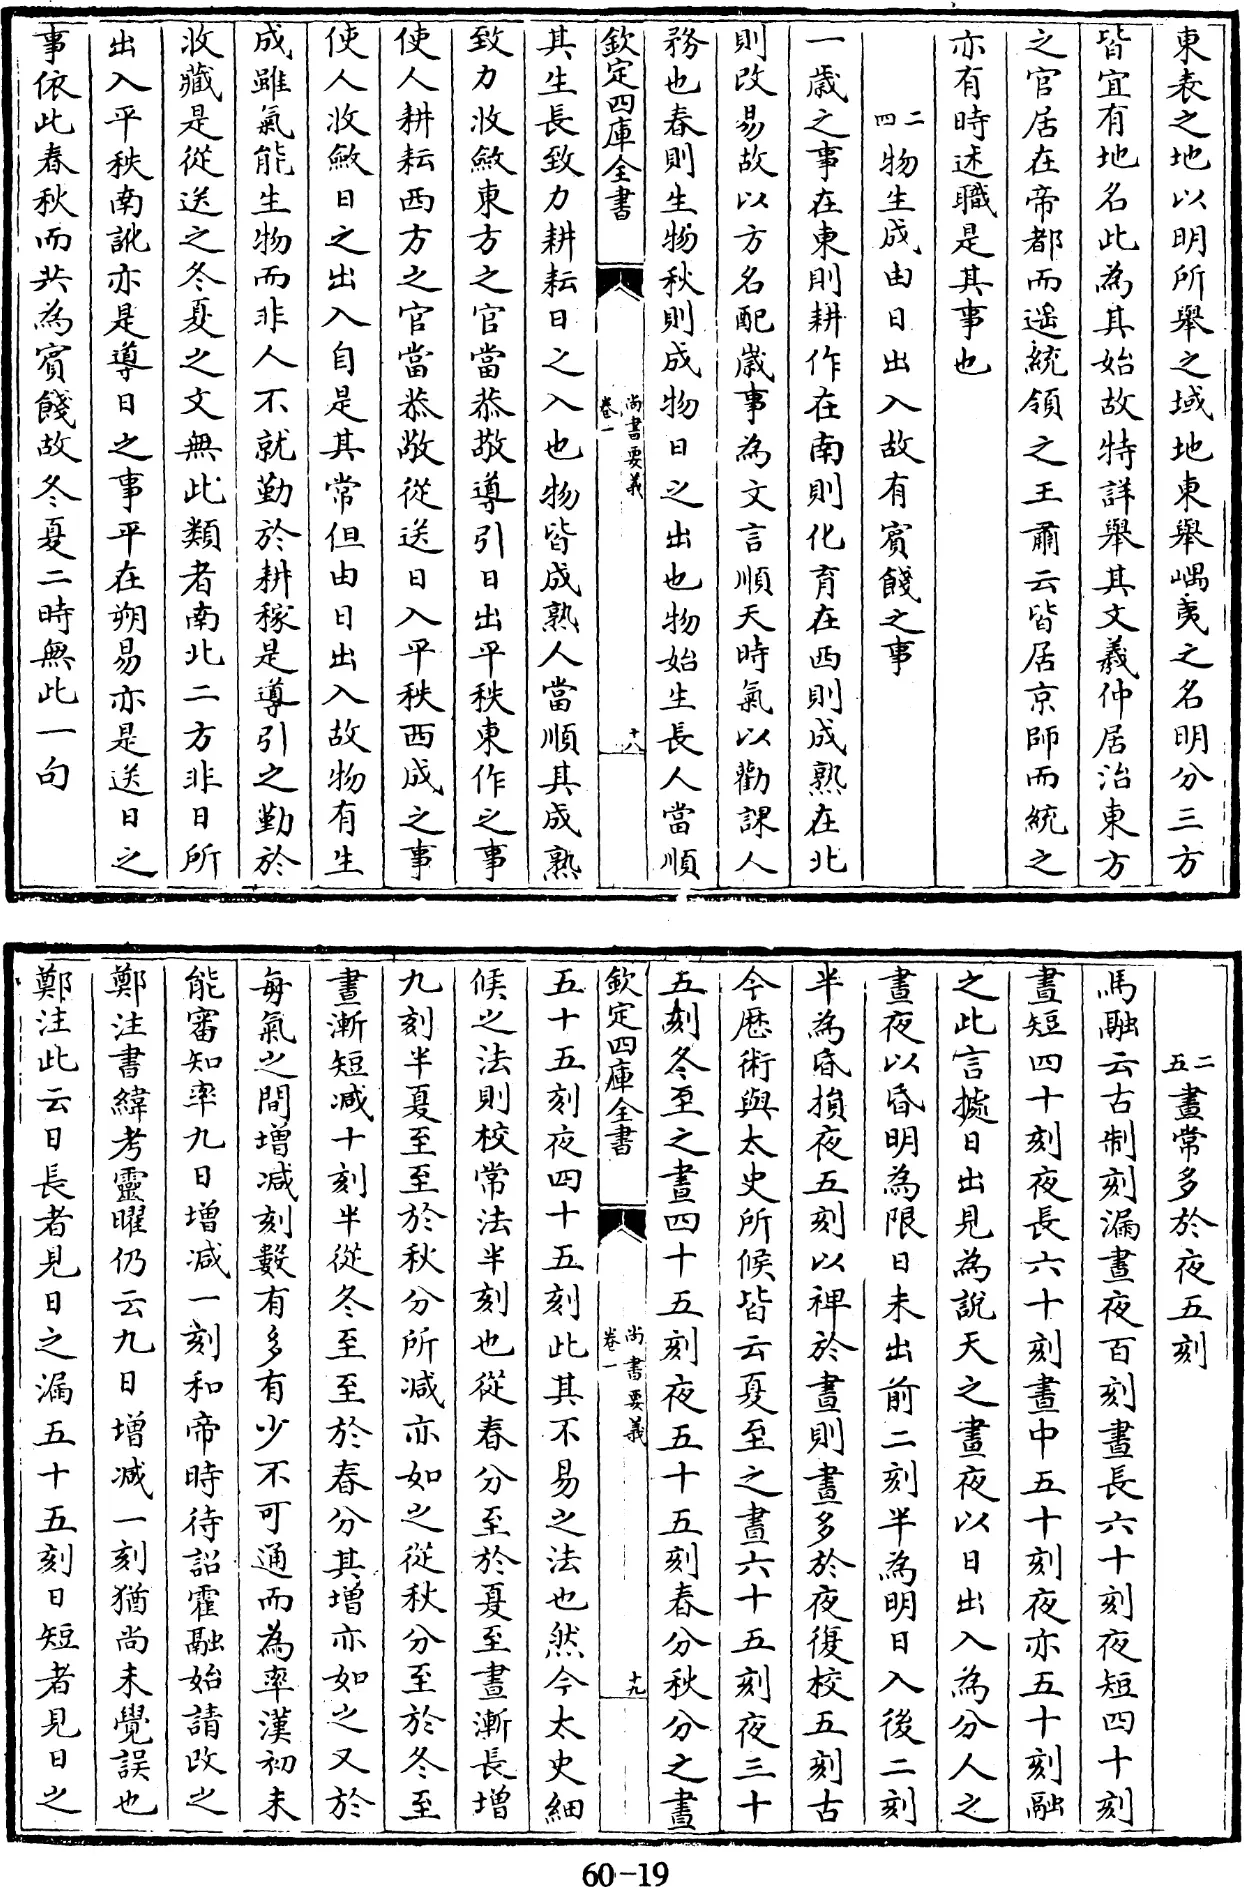 東表之地以明所舉之域地東舉嵎夷之名明分三方
皆宜有地名此為其始故特詳舉其文羲仲居治東方
之官居在帝都而遥統領之王肅云皆居京師而統之
亦有時述職是其事也
二四物生成由日出入故有賓餞之事
一歳之事在東則耕作在南則化育在西則成熟在北
則改易故以方名配歳事為文言順天時氣以勸課人
務也春則生物秋則成物日之出也物始生長人當順
欽定四庫全書
尚書要義
卷一
十八
其生長致力耕耘日之入也物皆成熟人當順其成熟
致力收斂東方之官當恭敬導引日出平秩東作之事
使人耕耘西方之官當恭敬從送日入平秩西成之事
使人收斂日之出入自是其常但由日出入故物有生
成雖氣能生物而非人不就勤於耕稼是導引之勤於
收藏是從送之冬夏之文無此類者南北二方非日所
出入平秩南訛亦是導日之事平在朔易亦是送日之
事依此春秋而共為賓餞故冬夏二時無此一句
二五晝常多於夜五刻
馬融云古制刻漏晝夜百刻晝長六十刻夜短四十刻
晝短四十刻夜長六十刻晝中五十刻夜亦五十刻融
之此言據日出見為說天之晝夜以日出入為分人之
晝夜以昏明為限日未出前二刻半為明日入後二刻
半為昏損夜五刻以裨於晝則晝多於夜復校五刻古
今厯術與太史所候皆云夏至之晝六十五刻夜三十
五刻冬至之晝四十五刻夜五十五刻春分秋分之晝
欽定四庫全書
尚書要義
卷一
十九
五十五刻夜四十五刻此其不易之法也然今太史細
候之法則校常法半刻也從春分至於夏至晝漸長增
九刻半夏至至於秋分所减亦如之從秋分至於冬至
晝漸短减十刻半從冬至至於春分其增亦如之又於
每氣之間增减刻數有多有少不可通而為率漢初未
能審知率九日增减一刻和帝時待詔霍融始請改之
鄭注書緯考靈曜仍云九日增减一刻猶尚未覺誤也
鄭注此云日長者見日之漏五十五刻日短者見日之
60-19